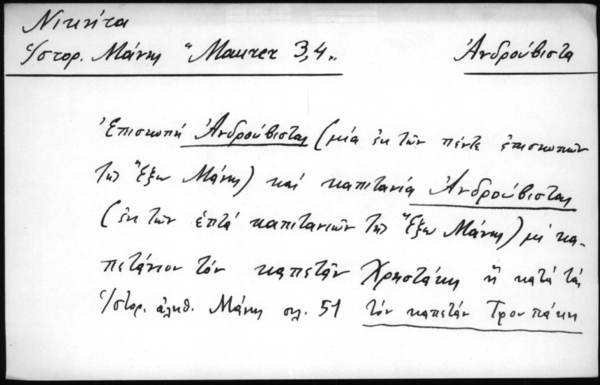 Νικήτα
Ἱστορ. Μάνης "Maurer 3,4„ Ἀνδρούβιστα
Ἐπισκοπή Ἀνδρούβιστας (μία ἐκ τῶν πέντε ἐπισκοπῶν
τῆς Ἔξω Μάνης) καί καπιτανία Ἀνδρούβιστας
(ἐκ τῶν ἑπτά καπιτανιῶν τῆς Ἔξω Μάνης) μέ κα-
πετάνιον τόν καπετάν Χρηστάκη ἤ κατά τάς
Ἱστορ. ἀληθ. Μάνης σελ. 51 τόν καπετάν Τρουπάκη